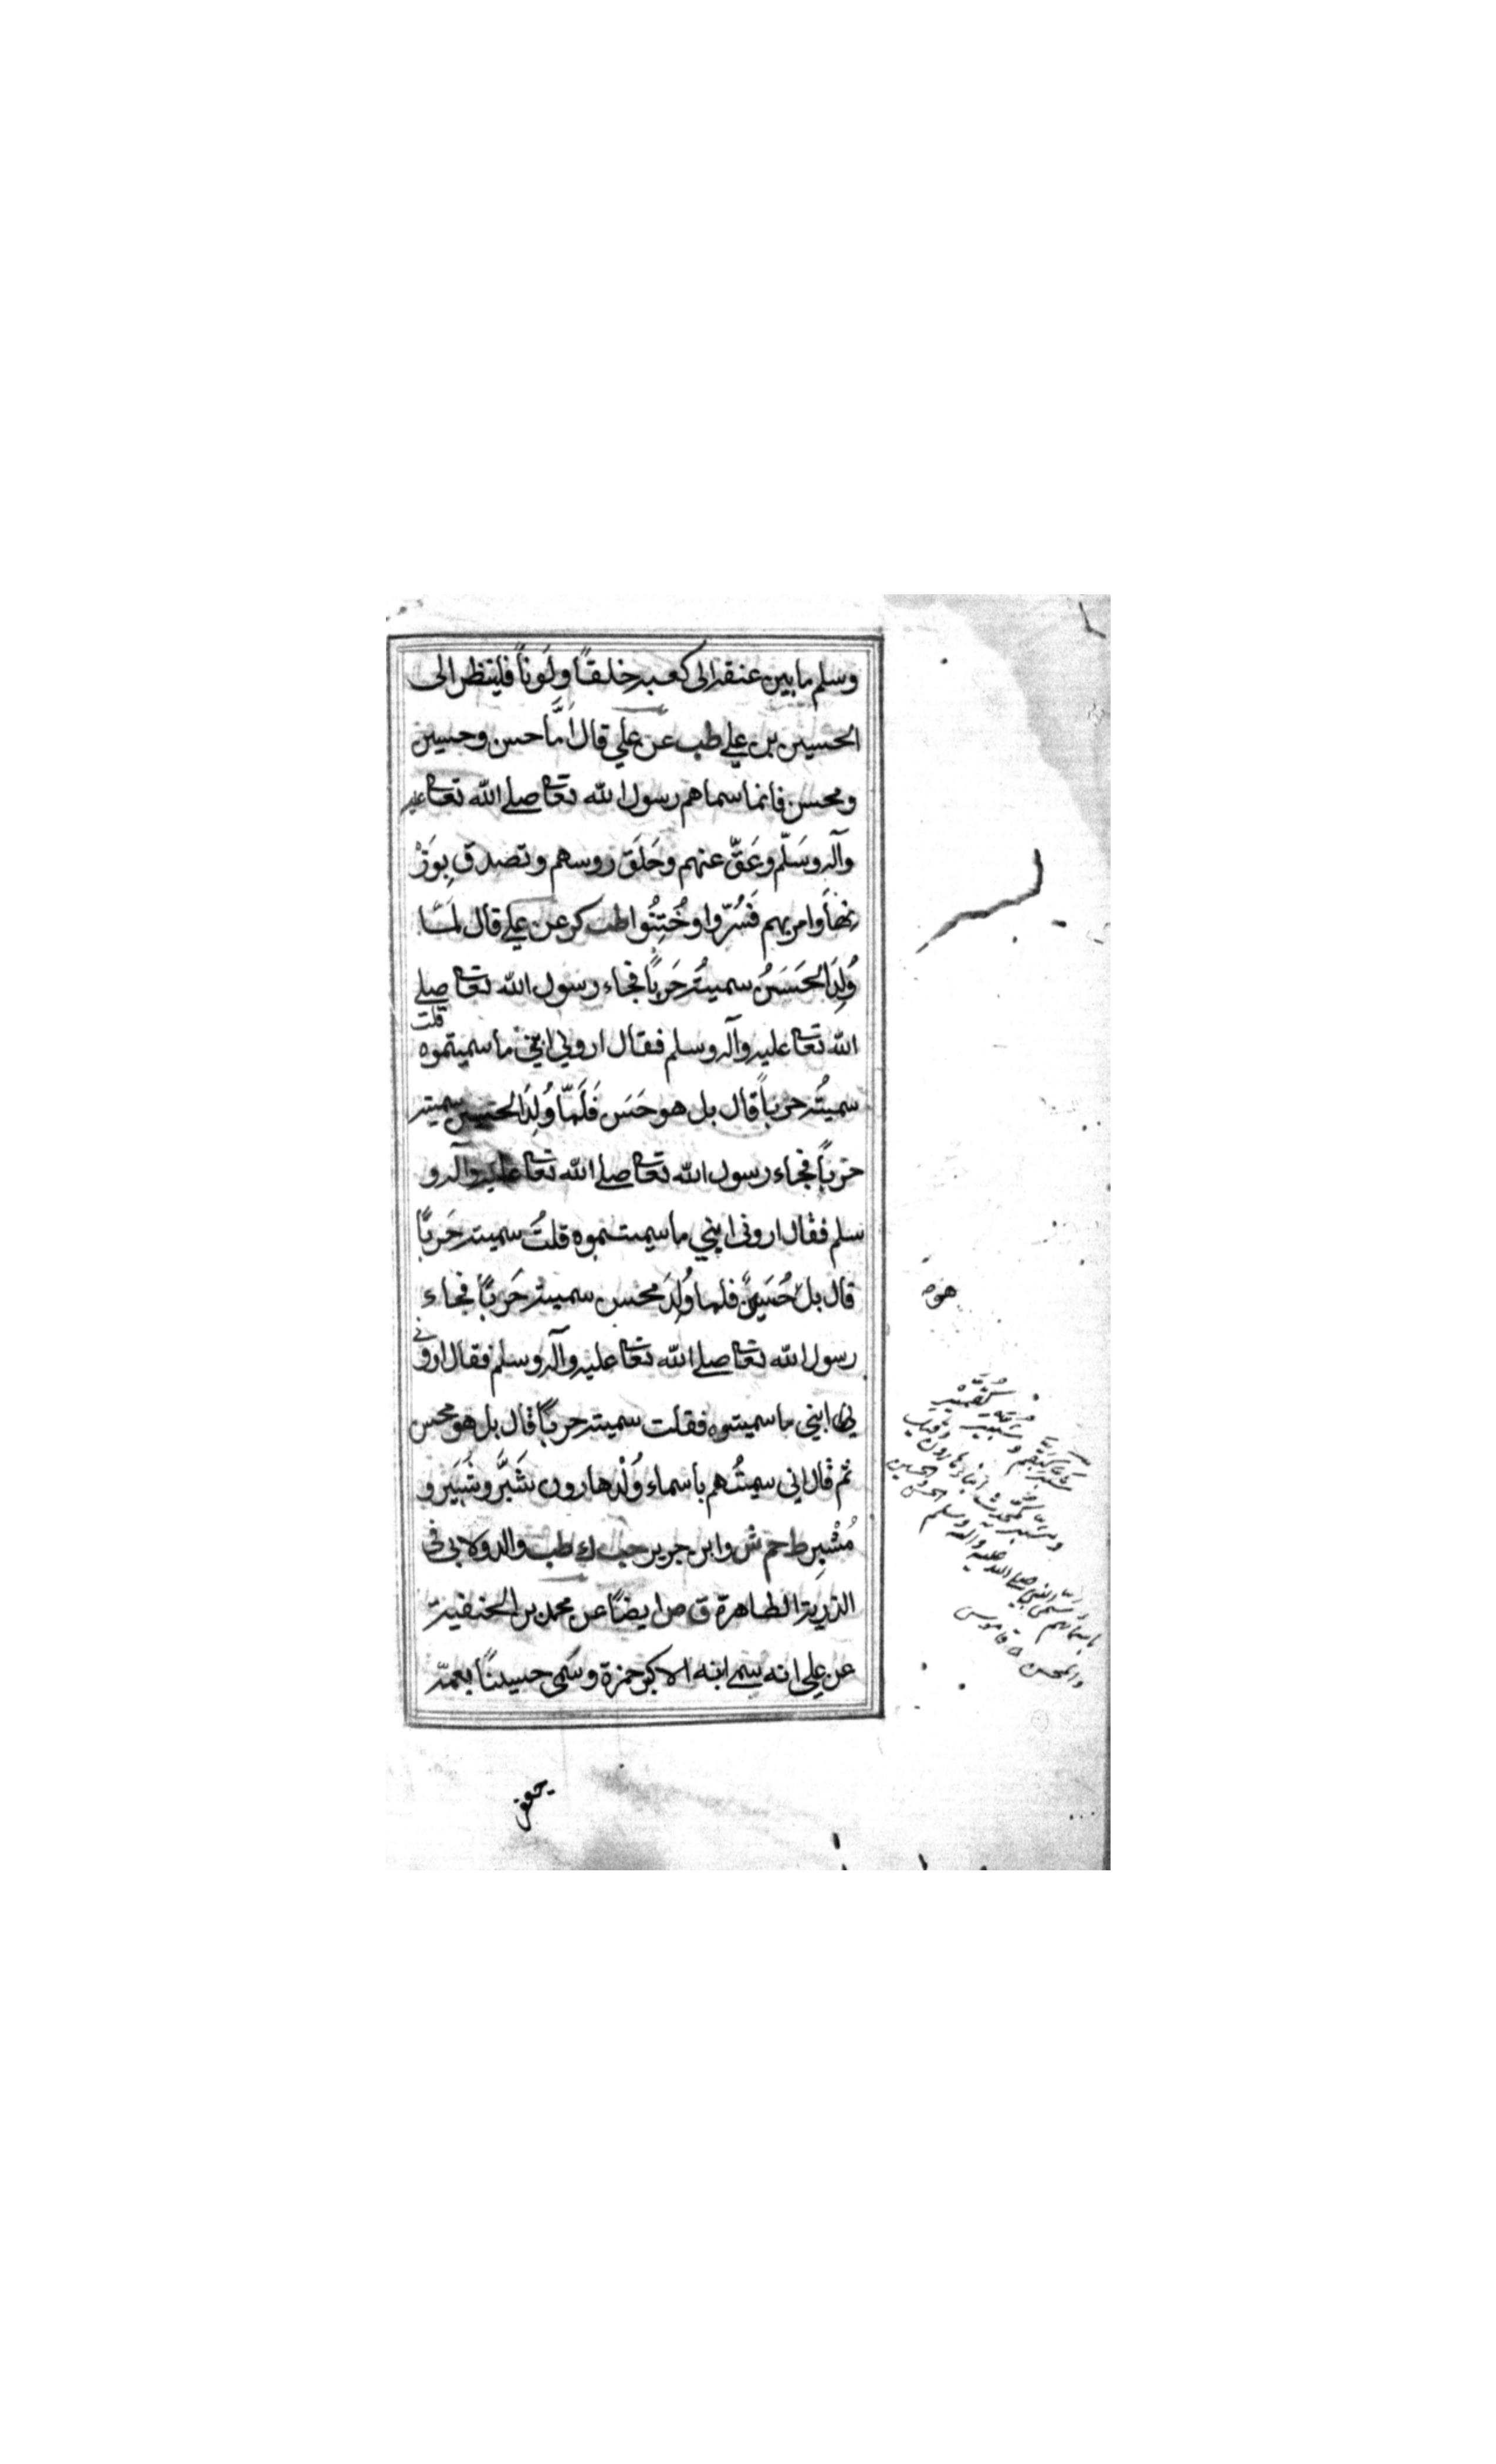 وسلم ما بين عنقه الى كعبه خلقًا ولَونًا فلينظر الى
الحسين بن علي طب عن علي قال أمَّا حسن وحسين
ومحسن فانما سماهم رسول الله تعا صلے الله تعا عليه
وآله وسَلّم وعَقّ عنهم وحَلَق روسهم وتصدق بِوَزْ
نها وامر بهم فَسُرّوا وخُتِنُوا طب كر عن علے قال لمّا
وُلِدَ الحَسَنُ سميتُه حَربًا فجاء رسول الله تعا صلے
الله تعا عليه وآله وسلم فقال اروني ابني ما سميتموه قلت
سميتُه حربًا قال بل هو حَسَن فَلَمّا وُلِدَ الحسين سميته
حربًا فجاء رسول الله تعا صلے الله تعا عليه وآله و
سلم فقال ارونى ابني ما سميتموه قلتُ سميته حَربًا
قال بل حُسَين فلما وُلِدَ محسن سميته حَربًا فجاء
رسول الله تعا صلے الله تعا عليه وآله وسلم فقال ارونى
ابني ما سميتوه فقلت سميته حربًا قال بل هو محسن
ثم قال اني سميتُهم باسماء وُلْد هارون شَبَّر وشَبِير و
مُشْبِر ط حم ش وابن جرير حب ك طب والدولابى فى
الذرية الطاهرة ق ص ايضًا عن محمد بن الحنفية
عن علي انه سمے ابنه الاكبر حمزة وسمى حسينًا بعمّه
هوه
شبر كبقم وشبير كقمير
ومشبر كمحدث ابناء هارون وقيل
باسمائهم سمى النبي صلے الله عليه وآله وسلم الحسن والحسين
والمحسن قاموس
جعفر